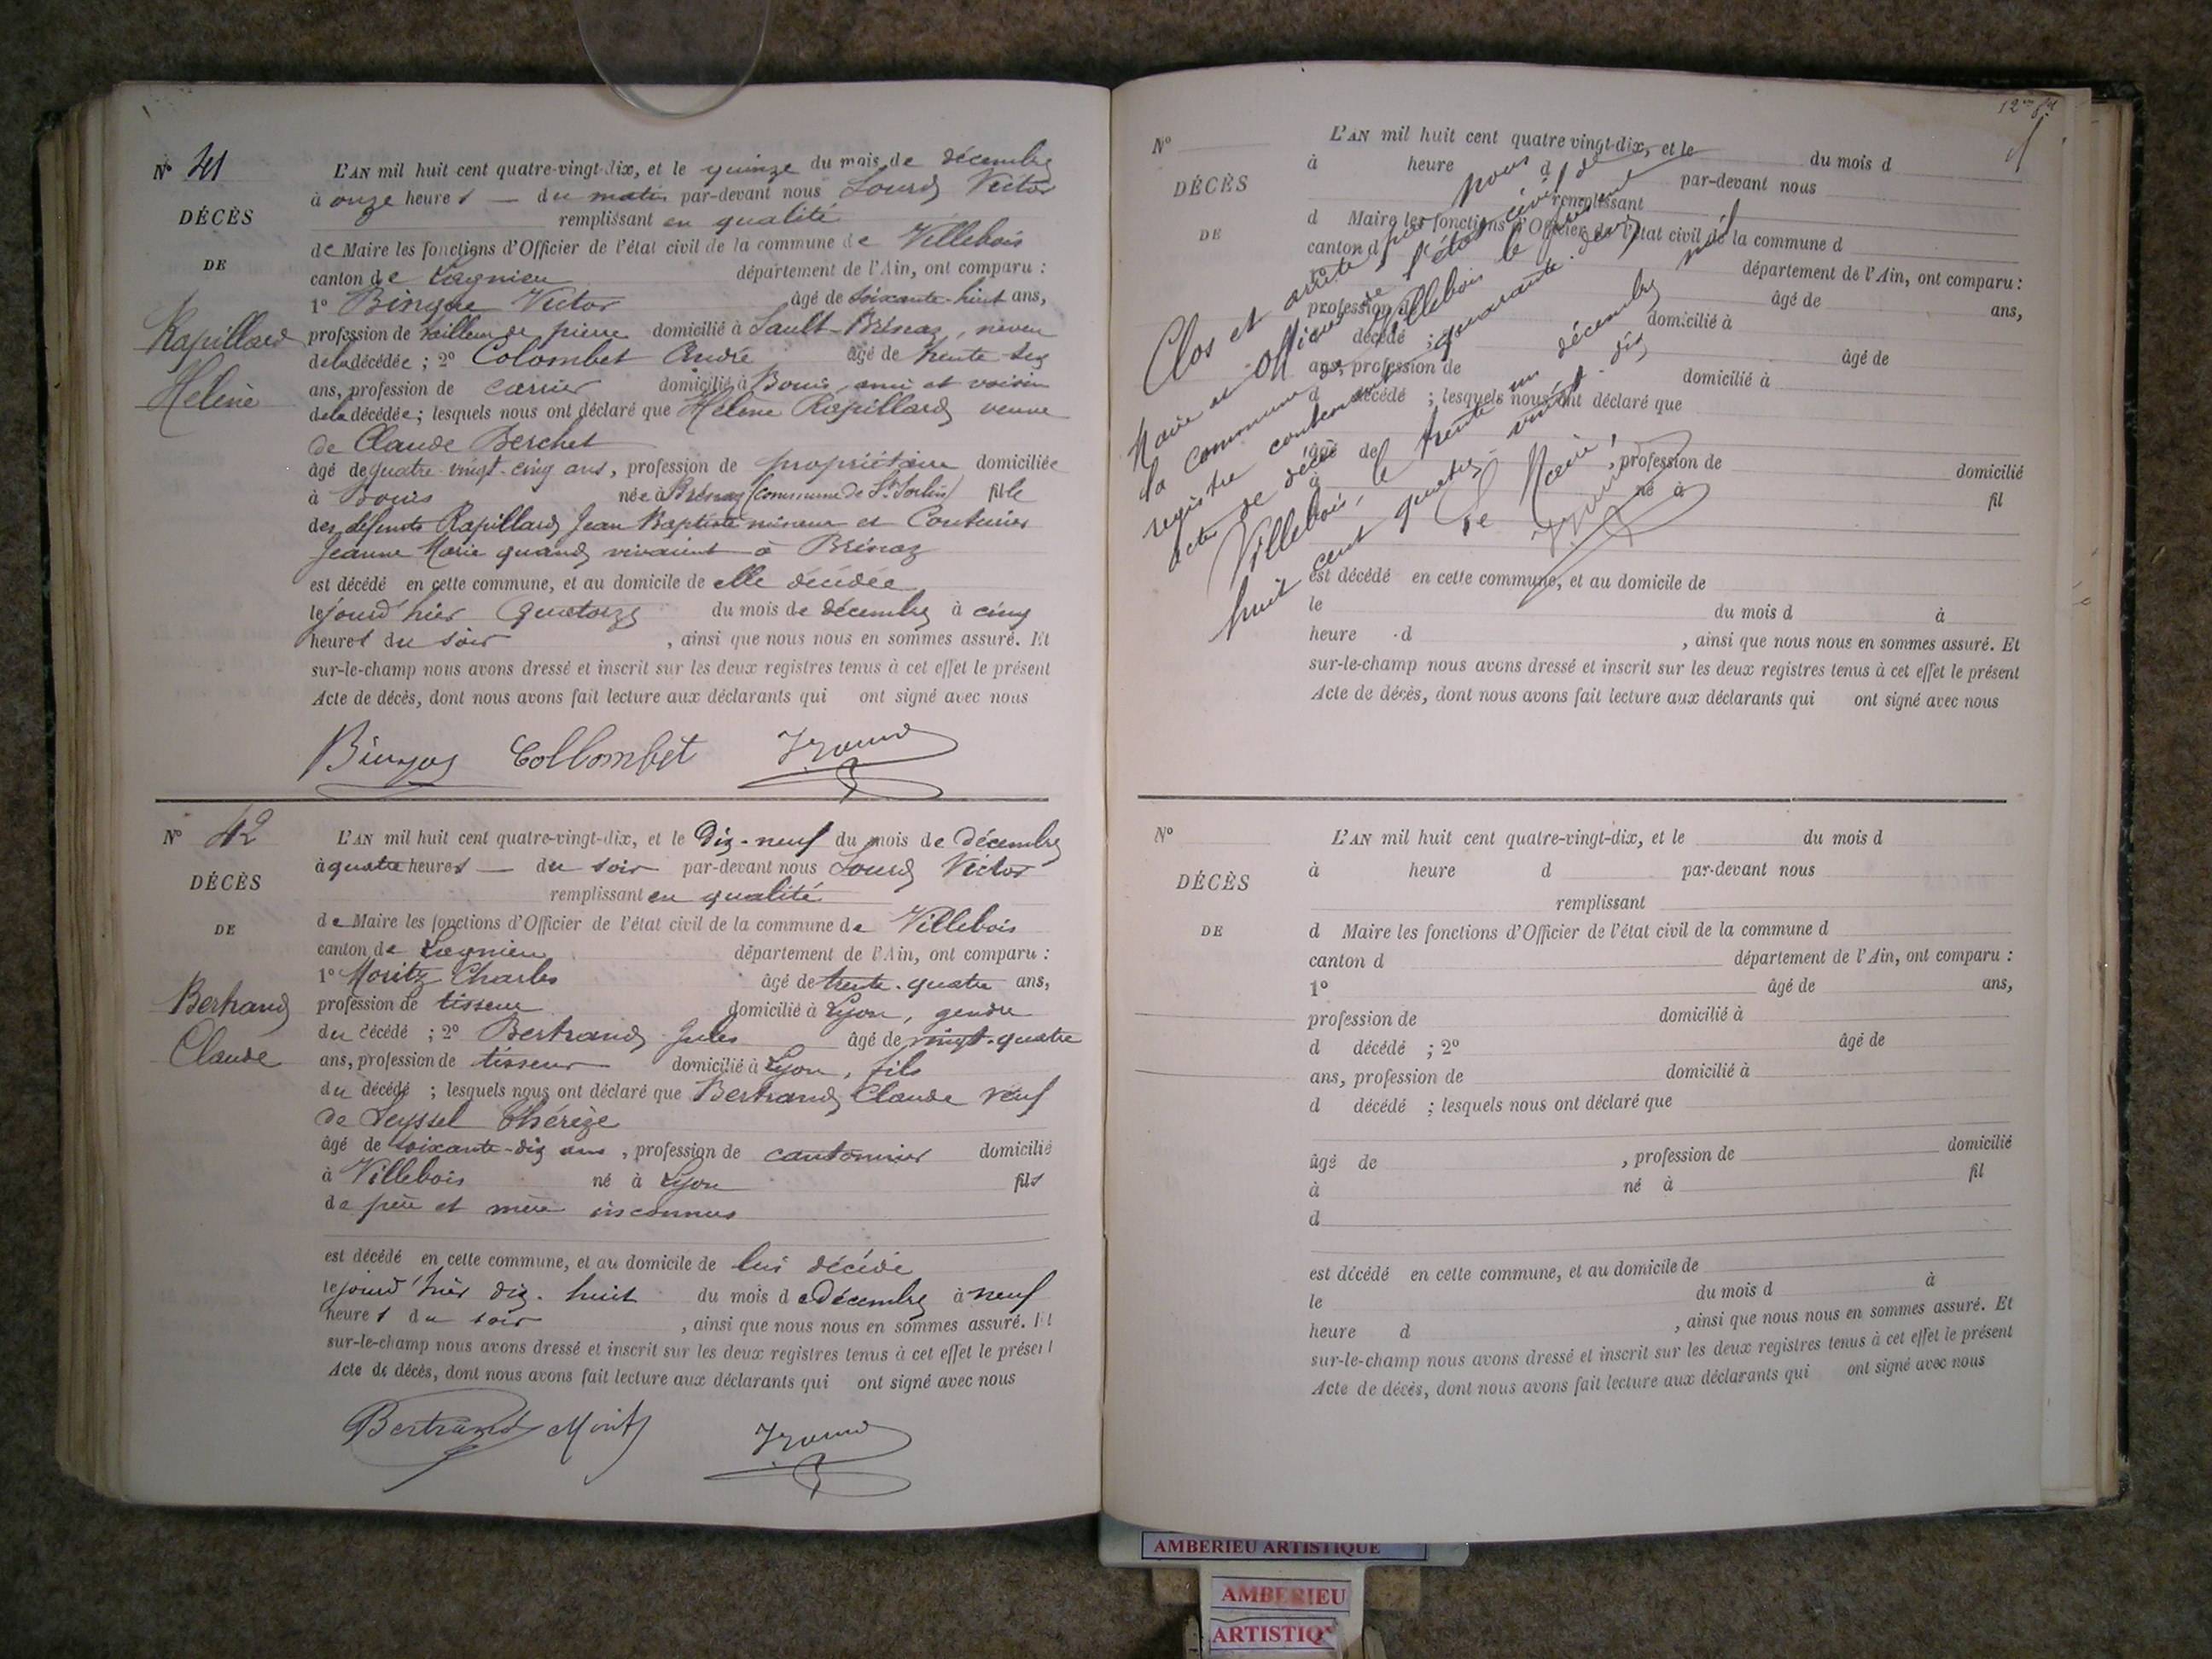 N° 41
DÉCÈS
DE
Rapillard
Hélène
L'AN mil huit cent quatre-vingt-dix, et le quinze du mois de décembre
à onze heures — du matin par-devant nous Lourd Victor
remplissant en qualité
de Maire les fonctions d'Officier de l'état civil de la commune de Villebois
canton de Lagnieu département de l'Ain, ont comparu :
1° Victor âgé de soixante-huit ans,
profession de tailleur de pierre domicilié à Sault-Brénaz, neveu
de la décédée ; 2° Colombet André âgé de trente-six
ans, profession de carrier domicilié à Bouis, ami et voisin
de la décédée ; lesquels nous ont déclaré que Hélène Rapillard veuve
de Claude Berchet
âgé de quatre-vingt-cinq ans, profession de propriétaire domiciliée
à Bouis née à Brénaz (commune de St Sorlin) fille
des défunts Rapillard Jean Baptiste mineur et Couturier
Jeanne Marie quand vivaient à Brénaz
est décédé en cette commune, et au domicile de elle décédée
le jourd'hier quatorze du mois de décembre à cinq
heures du soir , ainsi que nous nous en sommes assuré. Et
sur-le-champ nous avons dressé et inscrit sur les deux registres tenus à cet effet le présent
Acte de décès, dont nous avons fait lecture aux déclarants qui ont signé avec nous
Collombet
N° 42
DÉCÈS
DE
Bertrand
Claude
L'AN mil huit cent quatre-vingt-dix, et le Dix-neuf du mois de Décembre
à quatre heures — du soir par-devant nous Lourd Victor
remplissant en qualité
de Maire les fonctions d'Officier de l'état civil de la commune de Villebois
canton de Lagnieu département de l'Ain, ont comparu :
1° Moritz Charles âgé de trente-quatre ans,
profession de tisseur domicilié à Lyon, gendre
du décédé ; 2° Bertrand Jules âgé de vingt-quatre
ans, profession de tisseur domicilié à Lyon, fils
du décédé ; lesquels nous ont déclaré que Bertrand Claude veuf
de Leyssel Thérèze
âgé de soixante-dix ans , profession de cantonnier domicilié
à Villebois né à Lyon fils
de père et mère inconnus
est décédé en cette commune, et au domicile de lui décédé
le jourd'hier dix-huit du mois de Décembre à neuf
heures du soir , ainsi que nous nous en sommes assuré. Et
sur-le-champ nous avons dressé et inscrit sur les deux registres tenus à cet effet le présent
Acte de décès, dont nous avons fait lecture aux déclarants qui ont signé avec nous
Bertrand Moritz
N°
DÉCÈS
DE
L'AN mil huit cent quatre vingt-dix, et le du mois d
à heure d par-devant nous
remplissant
d Maire les fonctions d'Officier de l'état civil de la commune d
canton d département de l'Ain, ont comparu :
1° âgé de ans,
profession de domicilié à
d décédé ; 2° âgé de
ans, profession de domicilié à
d décédé ; lesquels nous ont déclaré que
âgé de , profession de domicilié
à né à fil
d
est décédé en cette commune, et au domicile de
le du mois d à
heure d , ainsi que nous nous en sommes assuré. Et
sur-le-champ nous avons dressé et inscrit sur les deux registres tenus à cet effet le présent
Acte de décès, dont nous avons fait lecture aux déclarants qui ont signé avec nous
Clos et arrêté par nous
Maire et Officier de l'état civil de
la commune de Villebois le présent
registre contenant quarante-deux
actes de décès
Villebois, le trente un décembre mil
huit cent quatre-vingt-dix
Le Maire,
N°
DÉCÈS
DE
L'AN mil huit cent quatre-vingt-dix, et le du mois d
à heure d par-devant nous
remplissant
d Maire les fonctions d'Officier de l'état civil de la commune d
canton d département de l'Ain, ont comparu :
1° âgé de ans,
profession de domicilié à
d décédé ; 2° âgé de
ans, profession de domicilié à
d décédé ; lesquels nous ont déclaré que
âgé de , profession de domicilié
à né à fil
d
est décédé en cette commune, et au domicile de
le du mois d à
heure d , ainsi que nous nous en sommes assuré. Et
sur-le-champ nous avons dressé et inscrit sur les deux registres tenus à cet effet le présent
Acte de décès, dont nous avons fait lecture aux déclarants qui ont signé avec nous
AMBERIEU ARTISTIQUE
AMBERIEU
ARTISTIQ